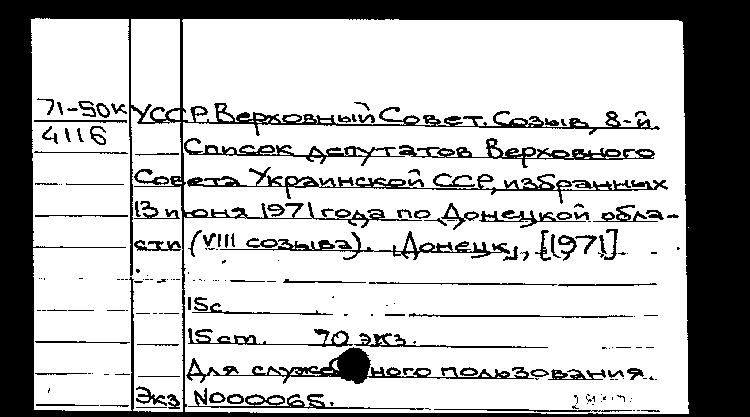 71-50к УССР. Верховный Совет. Созыв, 8-й.
4116
Список депутатов Верховного
Совета Украинской ССР, избранных
13 июня 1971 года по Донецкой обла-
сти (VIII созыва). Донецк, [1971].
15с.
15 cm. 70 экз.
Для служебного пользования.
Экз N000065.